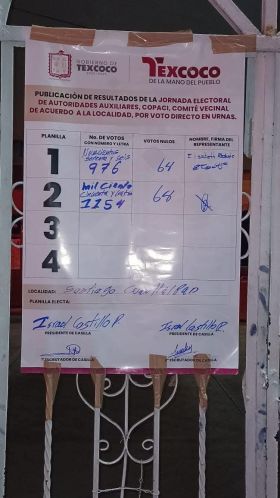 GOBIERNO DE
TEXCOCO
TEXCOCO
DE LA MANO DEL PUEBLO
PUBLICACIÓN DE RESULTADOS DE LA JORNADA ELECTORAL
DE AUTORIDADES AUXILIARES, COPACI, COMITÉ VECINAL
DE ACUERDO A LA LOCALIDAD, POR VOTO DIRECTO EN URNAS.
PLANILLA No. DE VOTOS CON NÚMERO Y LETRA VOTOS NULOS NOMBRE, FIRMA DEL REPRESENTANTE
1 976 64
2 mil Ciento 1154 64
3
4
LOCALIDAD: Santiago
PLANILLA ELECTA:
Israel Castillo P. Israel Castillo P.
PRESIDENTE DE CASILLA PRESIDENTE DE CASILLA
1er ESCRUTADOR DE CASILLA 2º ESCRUTADOR DE CASILLA